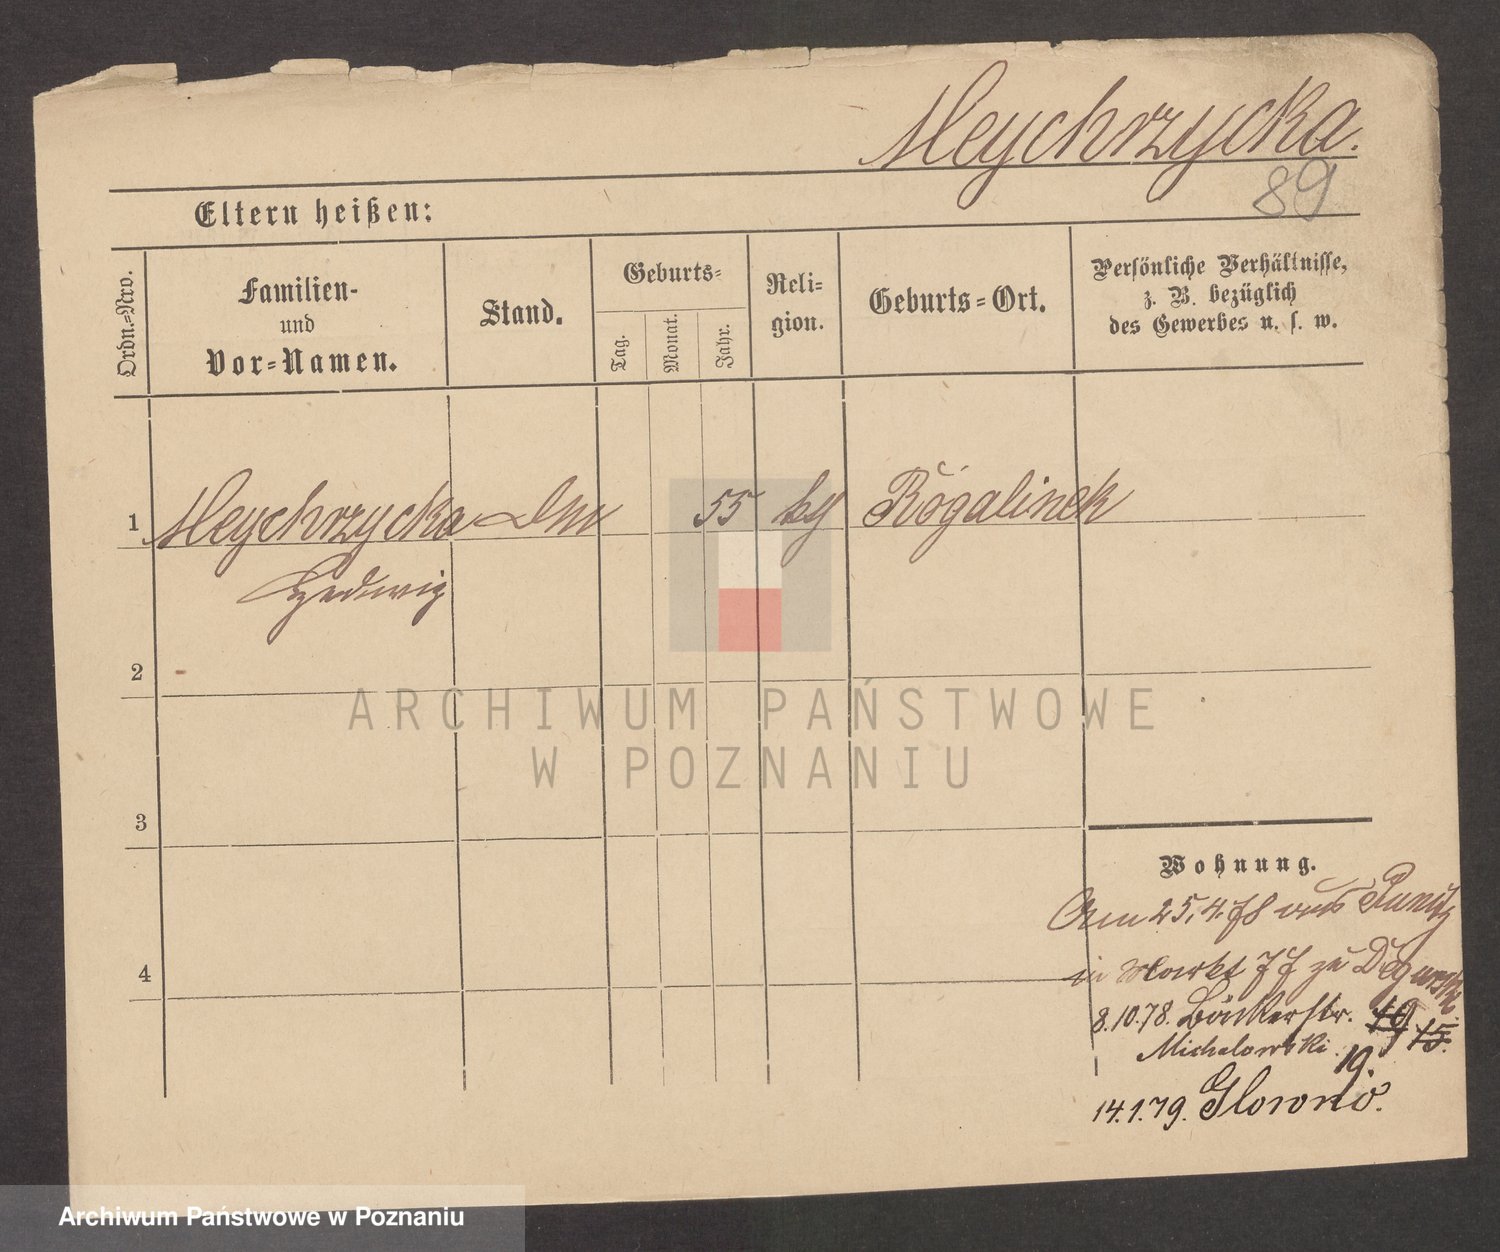 Meychrzycka.
89
Eltern heißen:
Ordn.=Nro.
Familien-
und
Vor=Namen.
Stand.
Geburts=
Tag.
Monat.
Jahr.
Reli=
gion.
Geburts=Ort.
Persönliche Verhältnisse,
z. B. bezüglich
des Gewerbes u. s. w.
1 Meychrzycka 55 Rogalinek
Hedwig
2
3
4
Wohnung.
Am 25.4.78 aus Punitz
in Markt 77 zu
8.10.78. Bäckerstr. 19 15.
Michalowski. 19.
14.1.79. Glowno.
ARCHIWUM PAŃSTWOWE
W POZNANIU
Archiwum Państwowe w Poznaniu